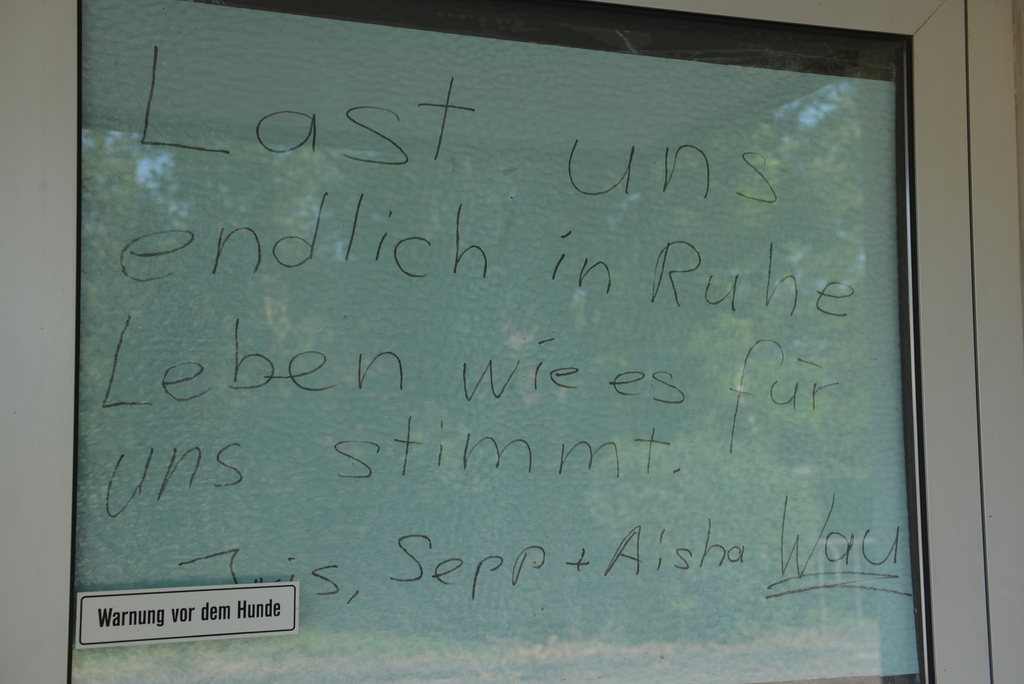 Last uns
endlich in Ruhe
Leben wie es für
uns stimmt.
Sepp + Aisha Wau
Warnung vor dem Hunde